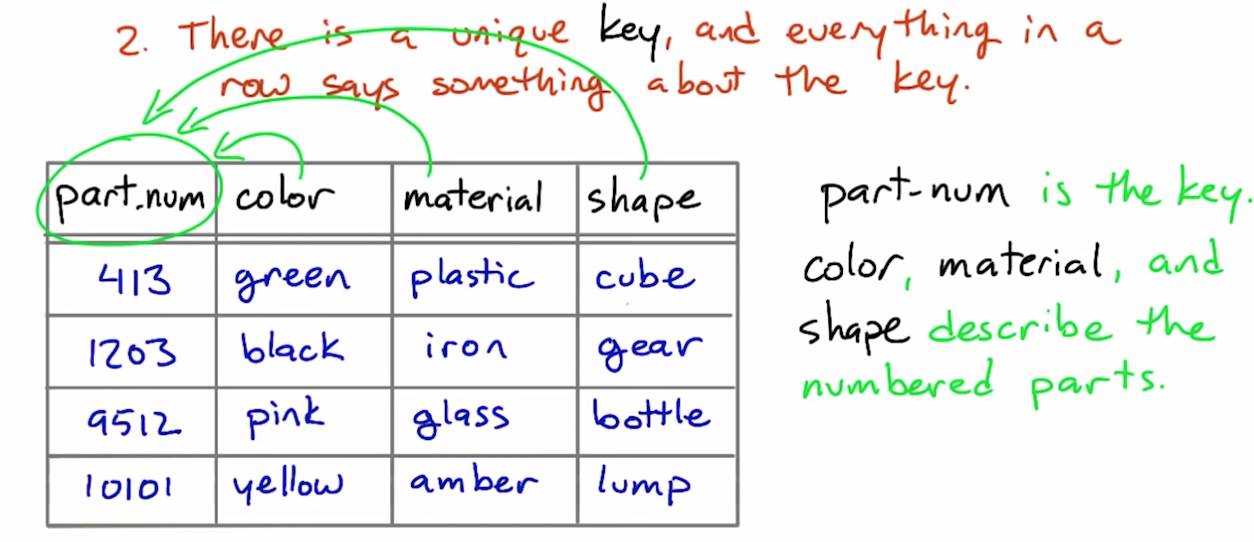 2. There is a unique key, and everything in a
row says something about the key.
part_num color material shape
413 green plastic cube
1203 black iron gear
9512 pink glass bottle
10101 yellow amber lump
part-num is the key.
color, material, and
shape describe the
numbered parts.